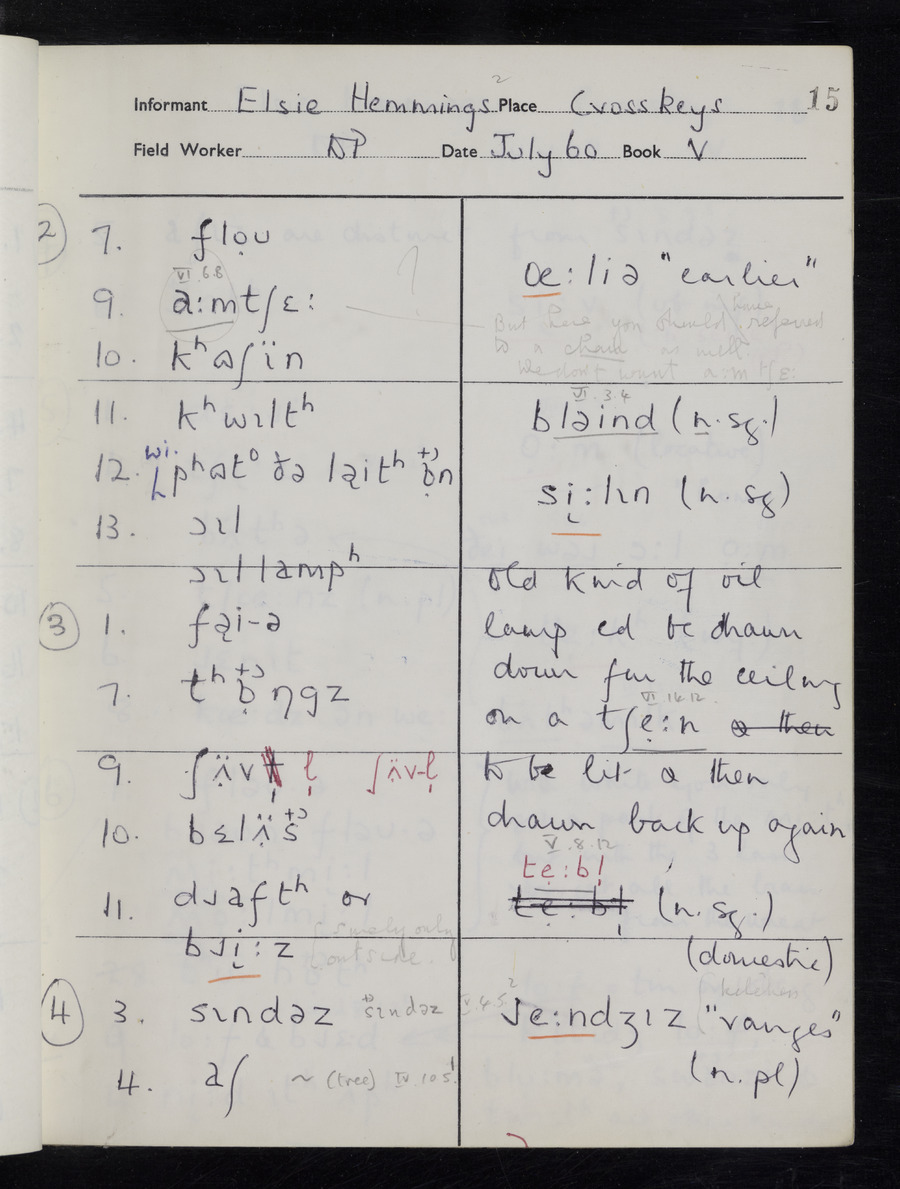 15
Informant Elsie Hemmings Place Crosskeys
Field Worker DP Date July 60 Book V
2 7. flọu
VI 6.8
9. a:mtʃɛ:
10. kʰɷʃïn
11. kʰwɪltʰ
wi.
12. pʰɷt⁰ ðə lạitʰ ɒ̣n
13. ɔɪl
ɔɪl lampʰ
3 1. fại-ə
7. tʰɒ̣ŋgz
9. ʃʌ̣̈v l̩ ʃʌ̣̈v-l̩
10. bɛlʌ̣̈s
11. dɹaftʰ or
bɹi̞:z
surely only
outside.
4 3. sɪndəz sɪndəz V.4.5
4. aʃ ~ (tree) IV.10.5
œ:liə "earlier"
have
But here you should referred
to a chair as well.
We don't want a:mtʃɛ:
VI.3.4
blaind (n.sg.)
si̞:lɪn (n.sg)
old kind of oil
lamp cd be drawn
down fm the ceiling
VI.14.12
on a tʃẹ:n & then
to be lit & then
drawn back up again
V.8.12
te:bl̩
te:bl̩ (n.sg.)
(domestic)
kitchen
ɹe:ndʒɪz "ranges"
(n.pl)